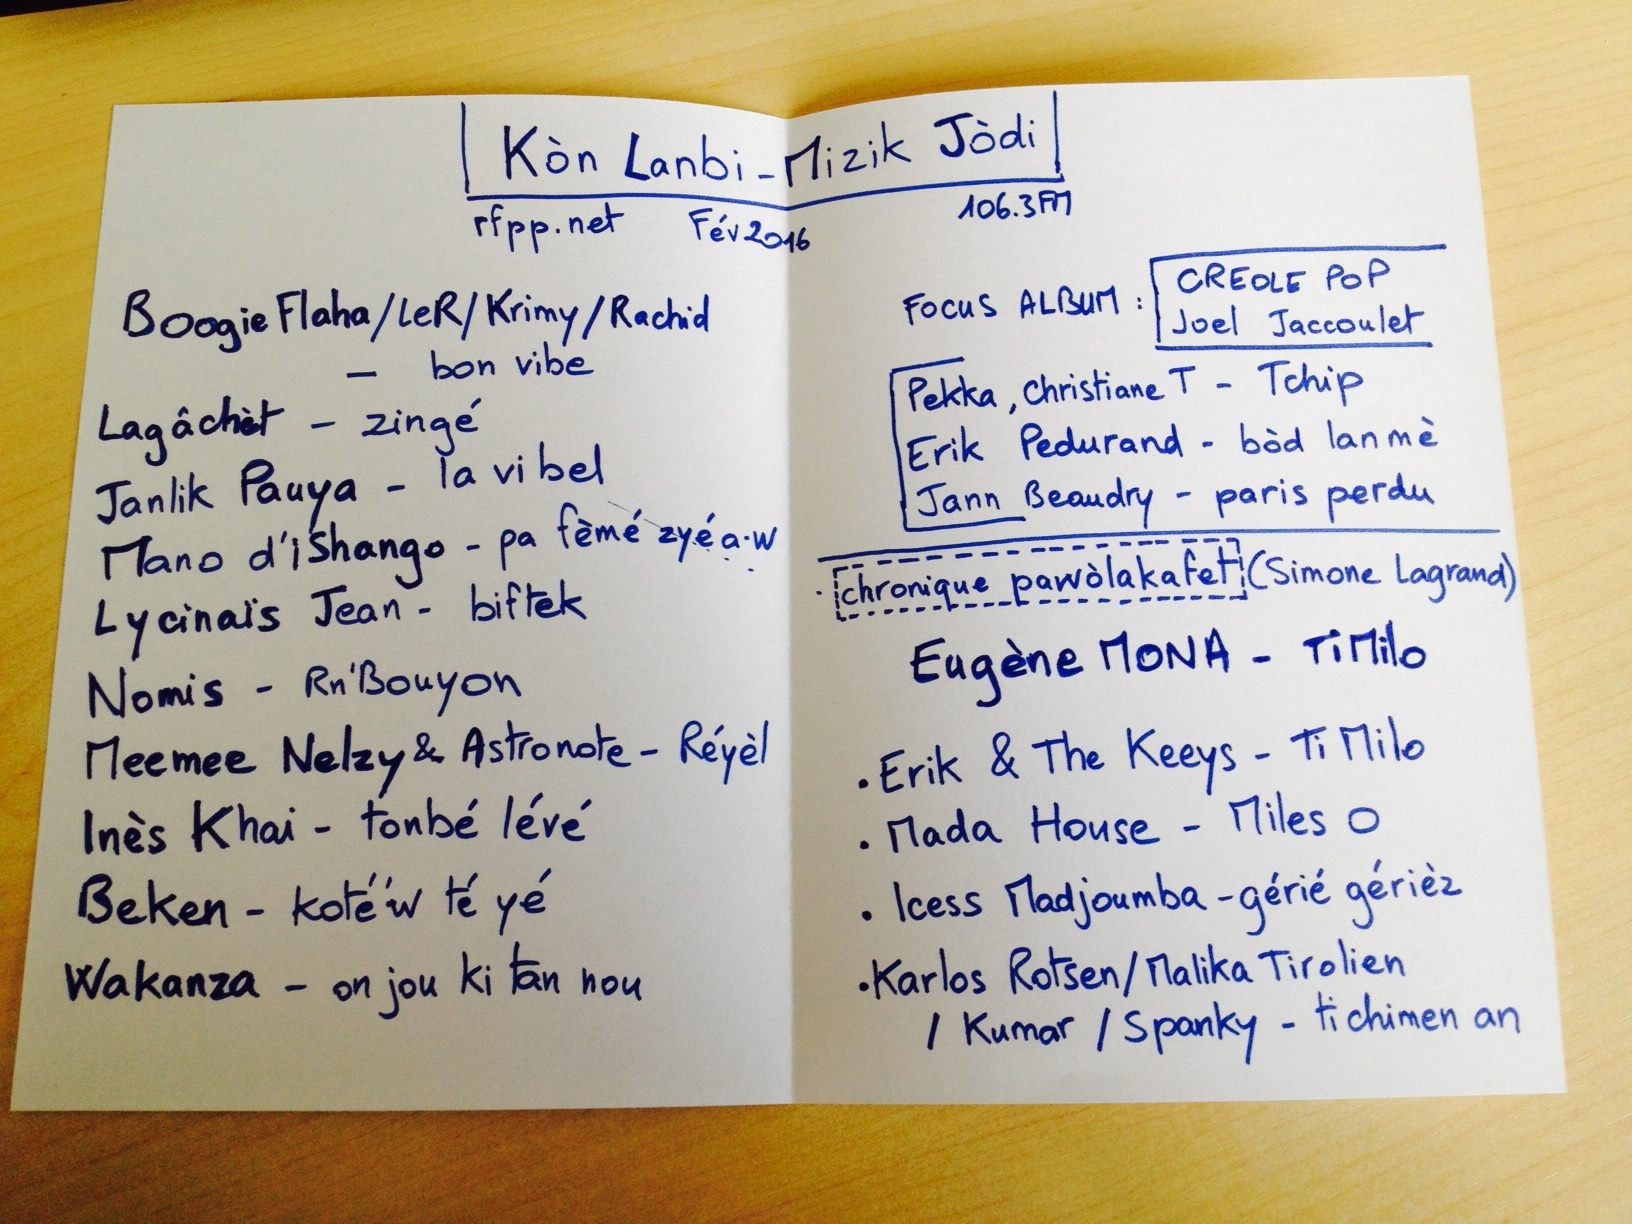 Kòn Lanbi - Mizik Jòdi
rfpp.net Fév 2016 106.3 FM
Boogie Flaha / LeR / Krimy / Rachid
- bon vibe
Lagâchèt - zingé
Janlik Pauya - la vi bel
Mano d'iShango - pa fèmé zyé a-w
Lycinaïs Jean - biftek
Nomis - Rn'Bouyon
Meemee Nelzy & Astronote - Réyèl
Inès Khai - tonbé lévé
Beken - koté'w té yé
Wakanza - on jou ki tan nou
FOCUS ALBUM : CREOLE POP
Joel Jaccoulet
Pekka, Christiane T - Tchip
Erik Pedurand - bòd lanmè
Jann Beaudry - paris perdu
. chronique pawòlakafet (Simone Lagrand)
Eugène MONA - Ti Milo
. Erik & The Keeys - Ti Milo
. Mada House - Miles O
. Icess Madjoumba - gérié gérièz
. Karlos Rotsen / Malika Tirolien
/ Kumar / Spanky - ti chimen an